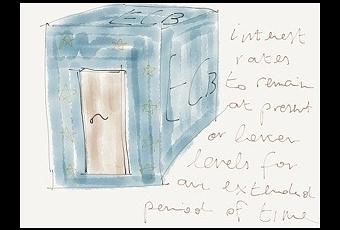 ECB
ECB
interest
rates
to remain
at present
or lower
levels for
an extended
period of time